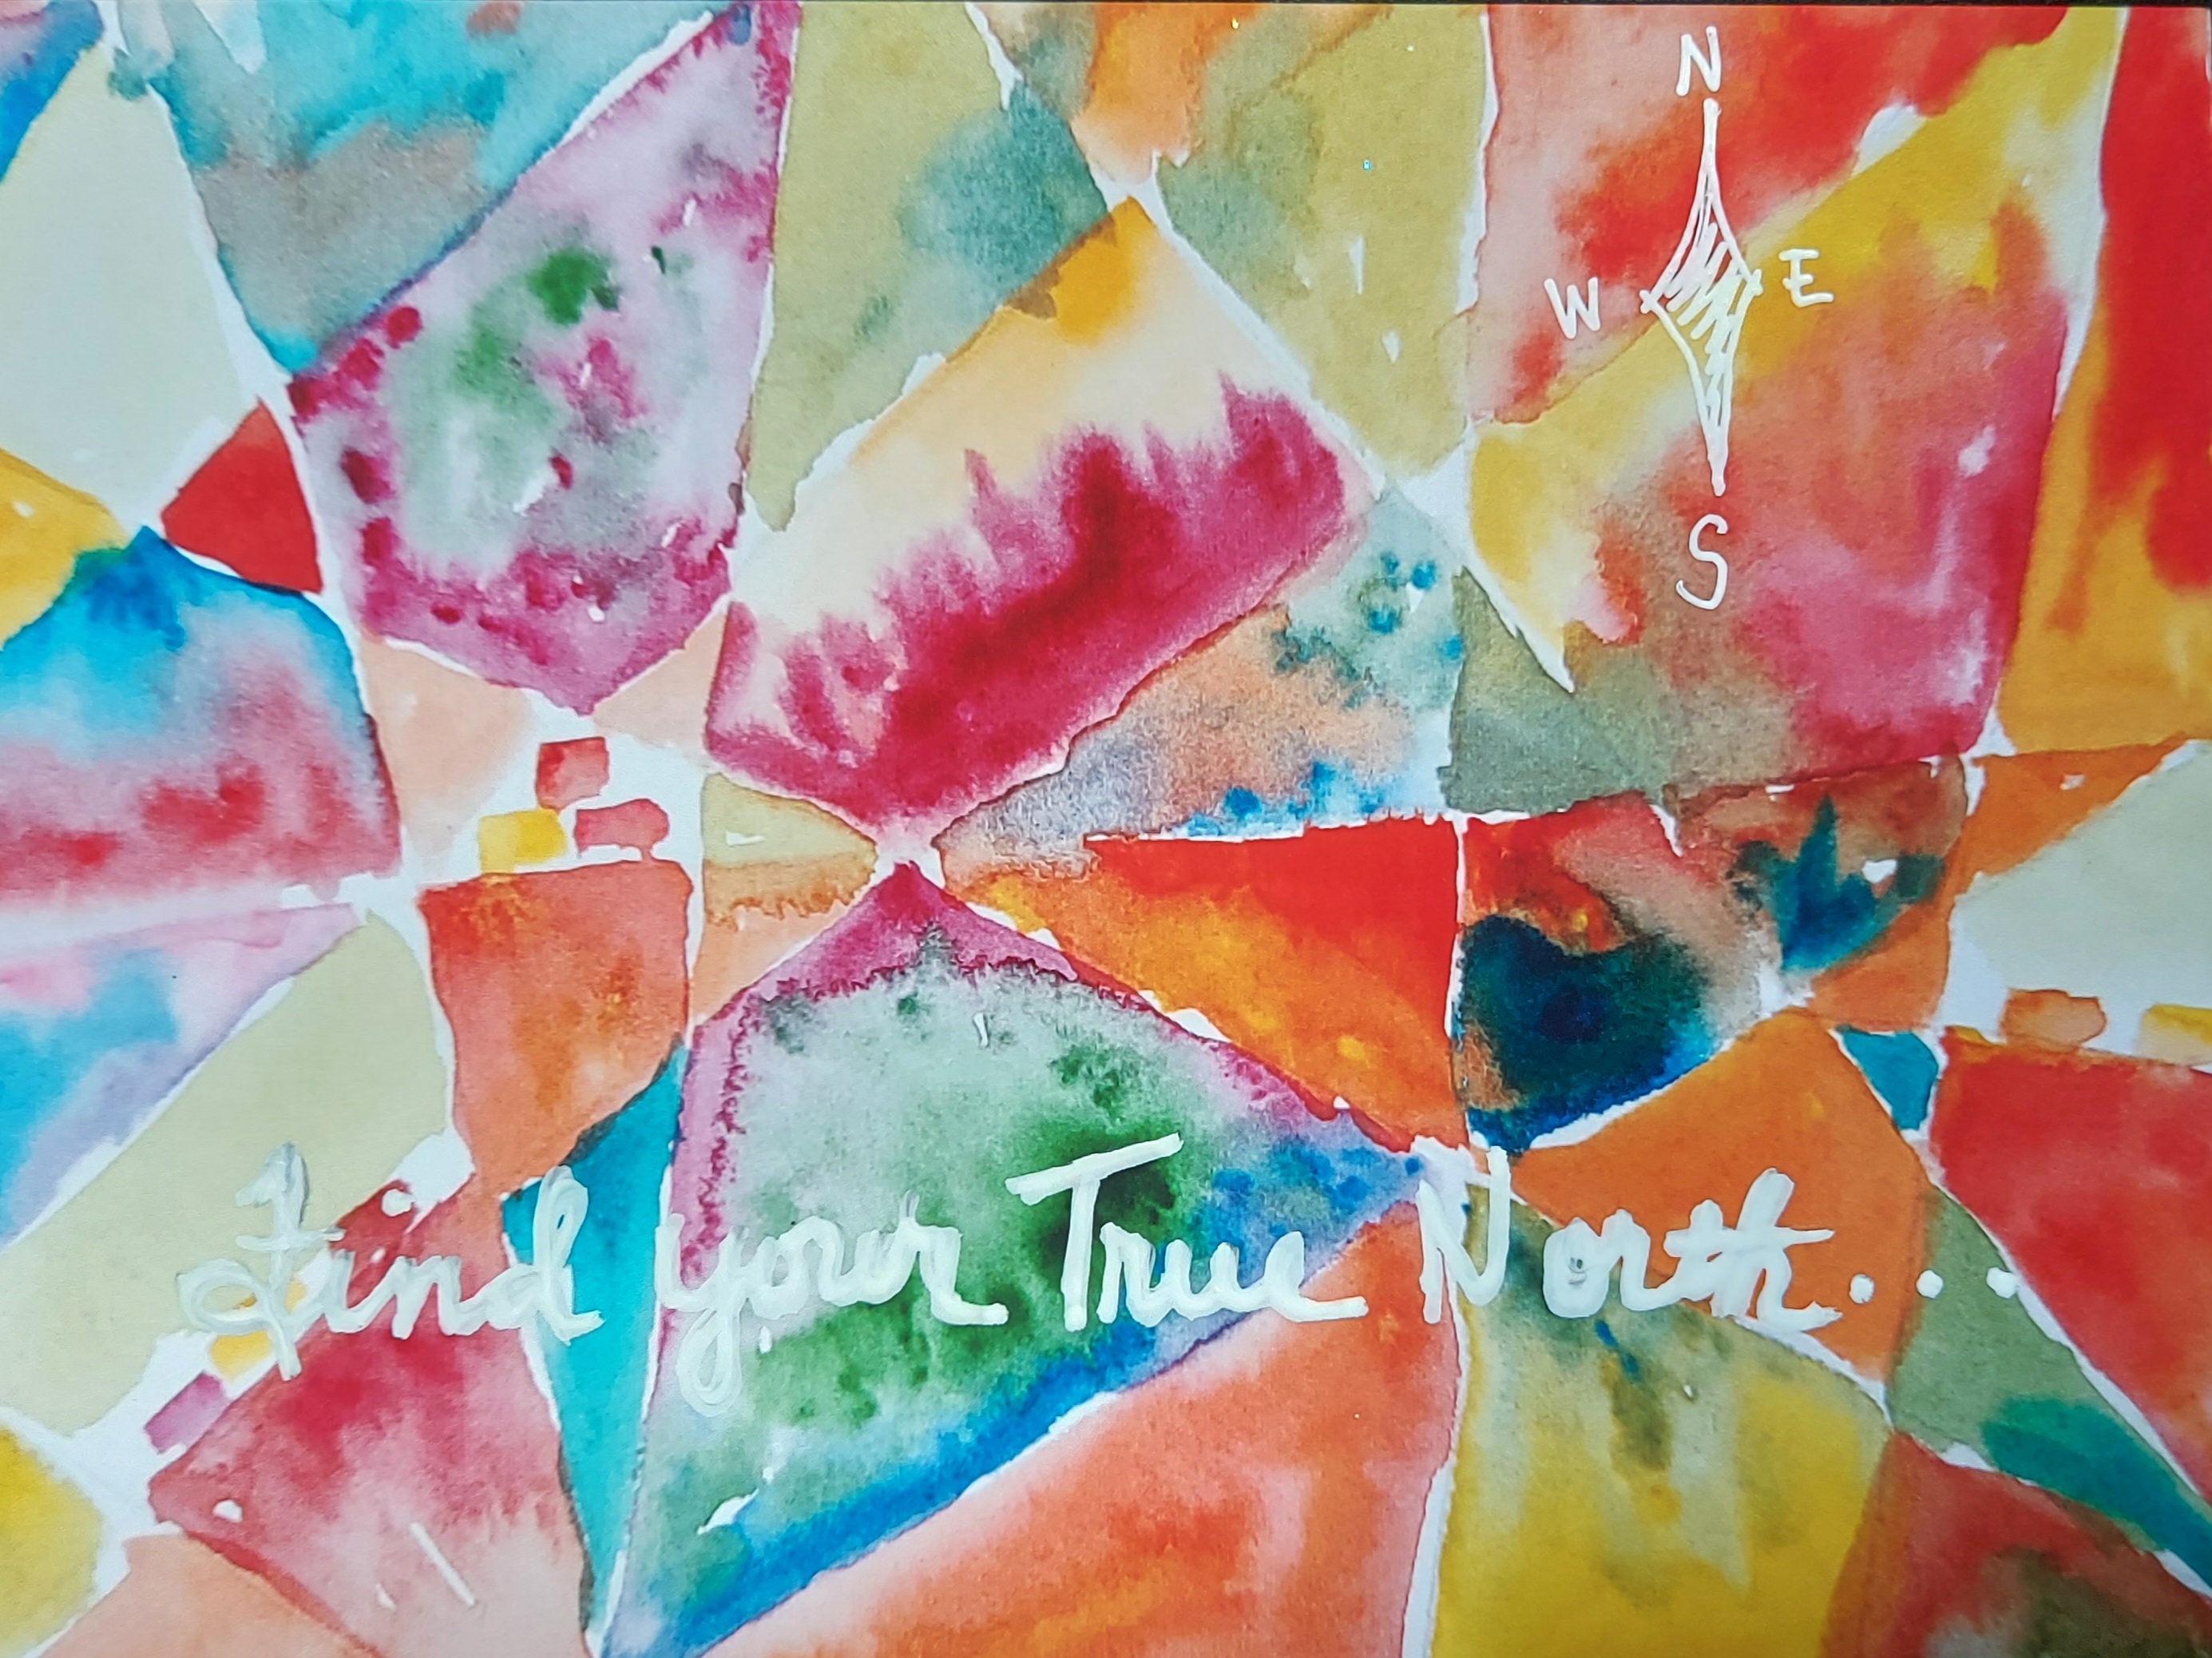 N
W E
S
Find your True North...